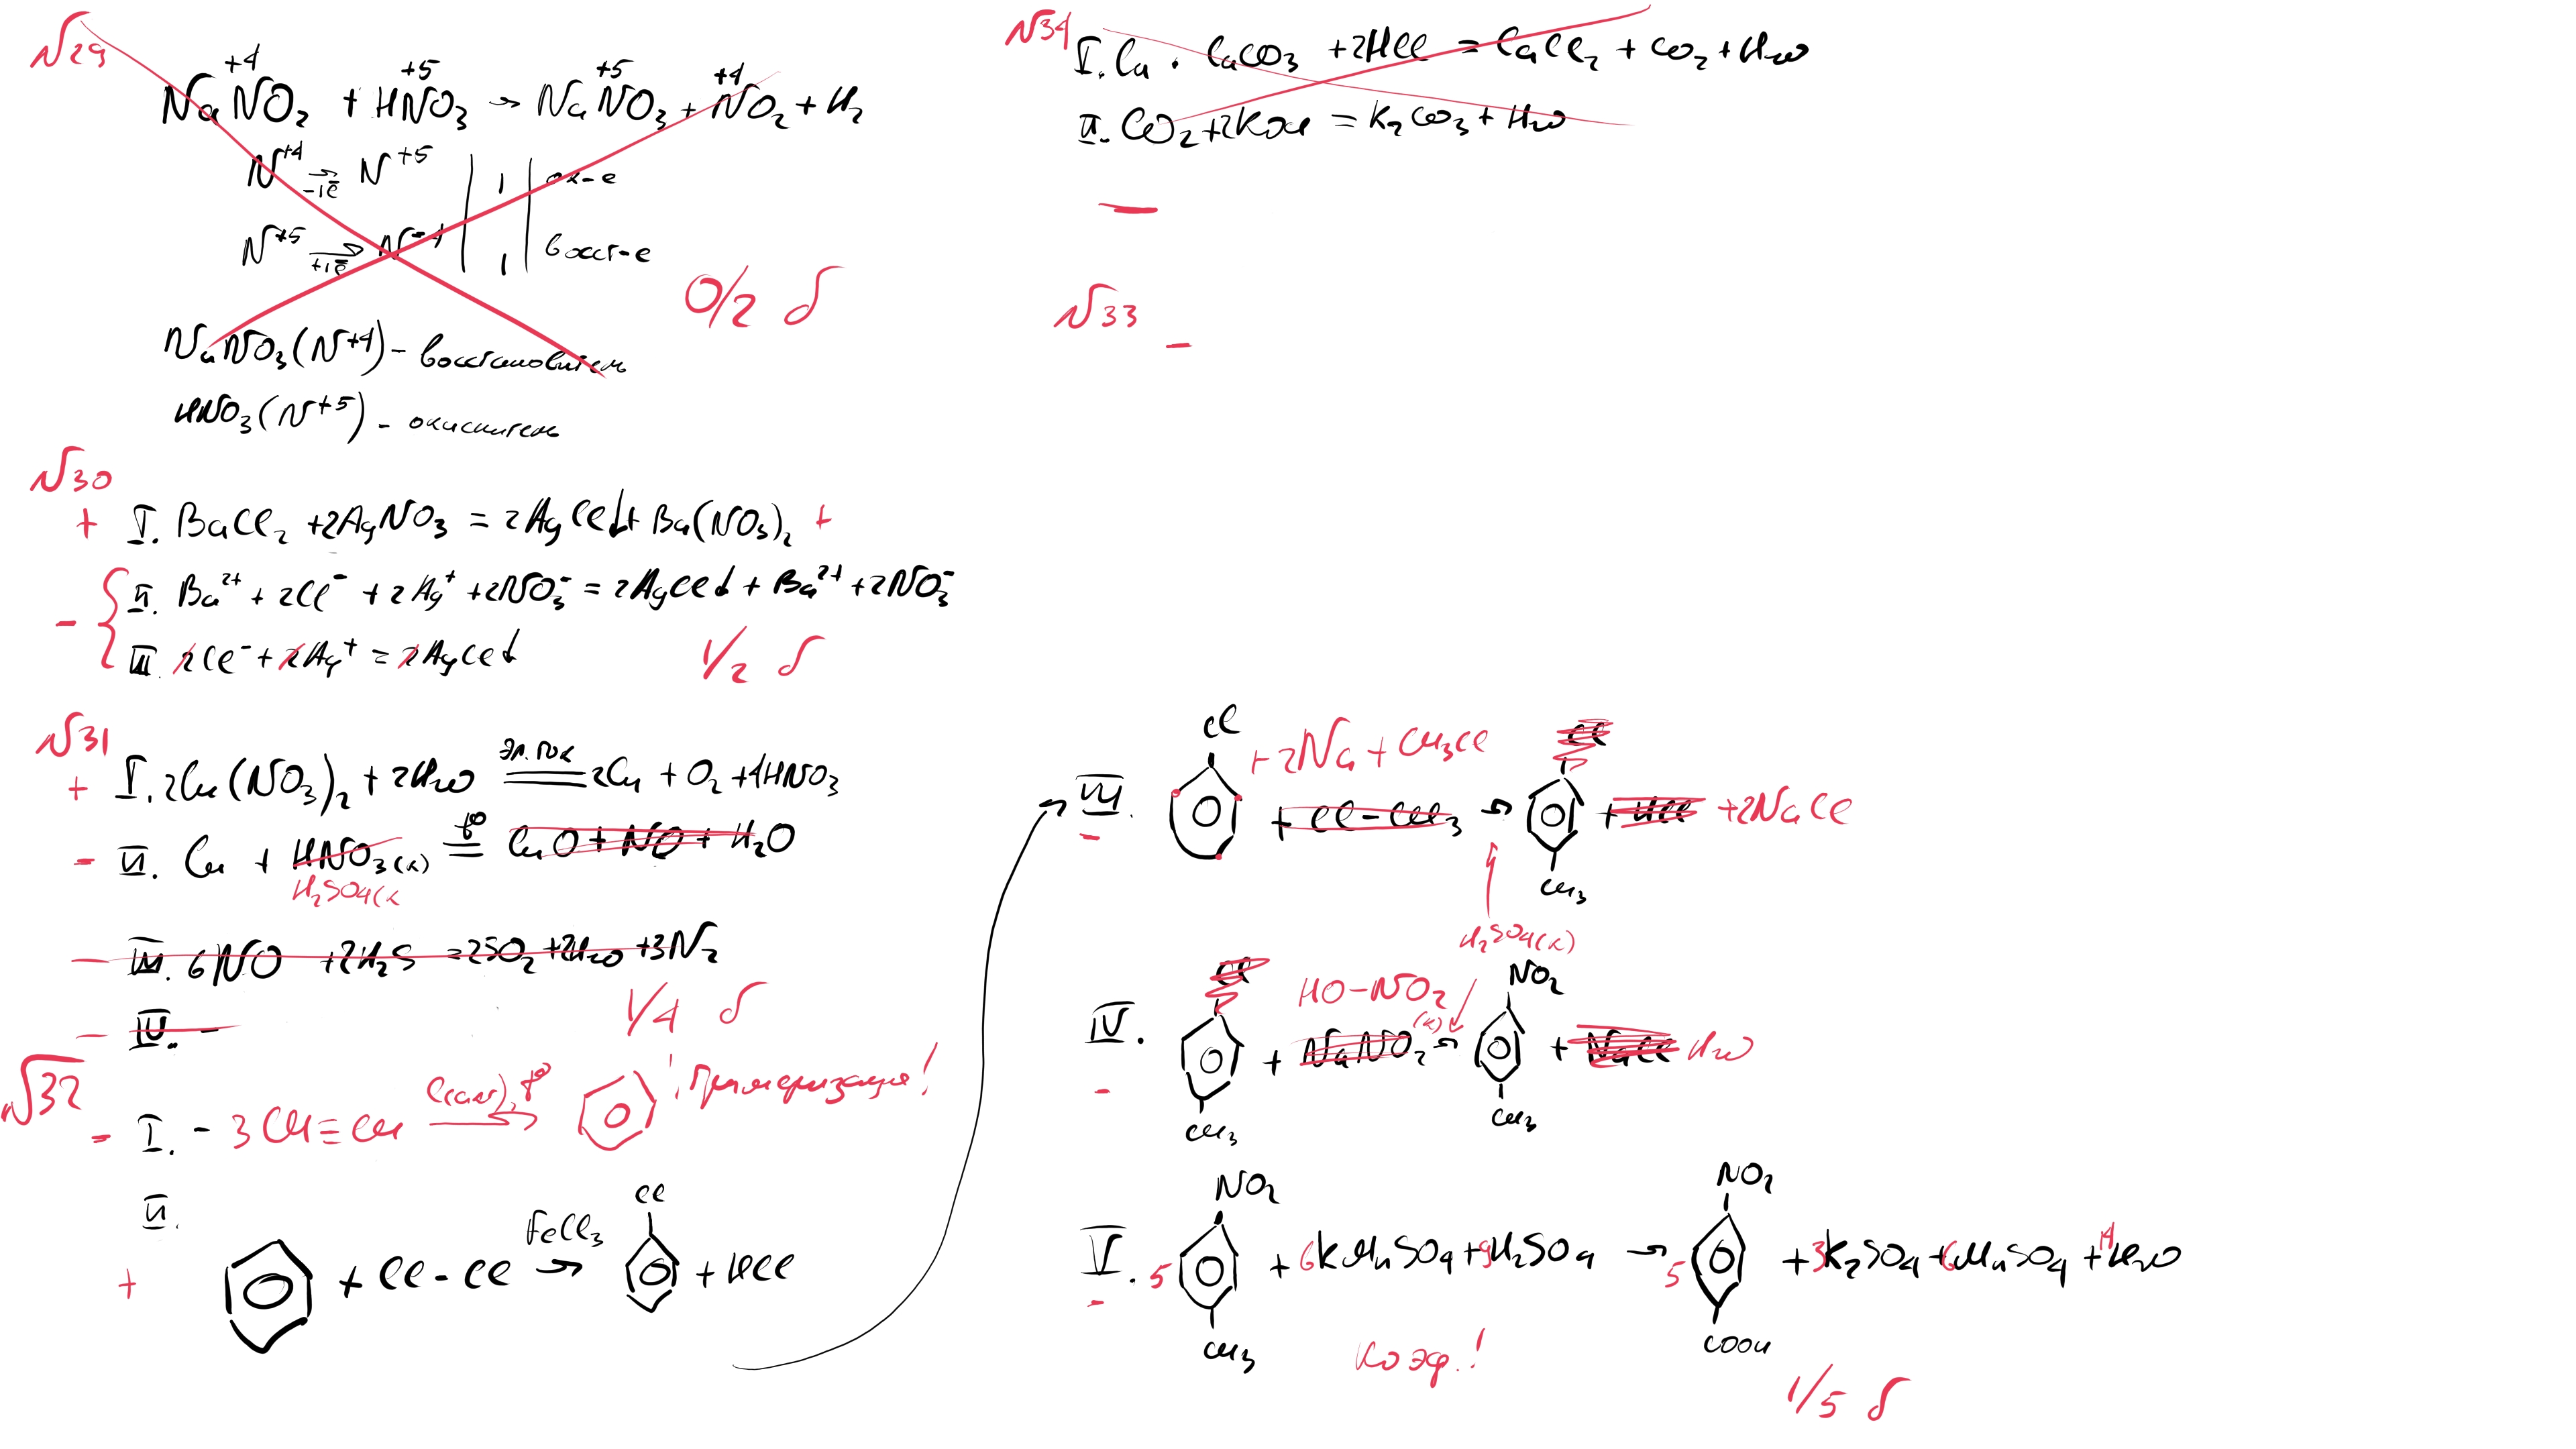 №29
+4 +5 +5 +4
NaNO₂ + HNO₃ → NaNO₃ + NO₂ + H₂
N⁺⁴ →
-1ē N⁺⁵ | 1 | ок-е
N⁺⁵ →
+1ē N⁺⁴ | 1 | восст-е
0/2 б
NaNO₃(N⁺⁴) - восстановитель
HNO₃(N⁺⁵) - окислитель
№30
+ I. BaCl₂ + 2AgNO₃ = 2AgCl↓ + Ba(NO₃)₂ +
- { II. Ba²⁺ + 2Cl⁻ + 2Ag⁺ + 2NO₃⁻ = 2AgCl↓ + Ba²⁺ + 2NO₃⁻
III. 2Cl⁻ + 2Ag⁺ = 2AgCl↓
1/2 б
№31
+ I. 2Cu(NO₃)₂ + 2H₂O =эл. ток= 2Cu + O₂ + 4HNO₃
- II. Cu + HNO₃(к) =t°= CuO + NO + H₂O
H₂SO₄(к
- III. 6NO + 2H₂S = 2SO₂ + 2H₂O + 3N₂
- IV. -
1/4 б
№32
- I. - 3CH≡CH C(акт), t° → ! Тримеризация!
II.
+ + Cl-Cl FeCl₃ → Cl + HCl
№34
I. Ca · CaCO₃ + 2HCl = CaCl₂ + CO₂ + H₂O
II. CO₂ + 2KOH = K₂CO₃ + H₂O
-
№33
-
- III. Cl + 2Na + CH₃Cl + Cl-CH₃ → Cl CH₃ + HCl + 2NaCl
H₂SO₄(к)
- IV. Cl CH₃ + NaNO₂ HO-NO₂ (к) → NO₂ CH₃ + NaCl H₂O
- V. 5 NO₂ CH₃ + 6KMnSO₄ + 9H₂SO₄ → 5 NO₂ COOH + 3K₂SO₄ + 6MnSO₄ + 14H₂O
Коэф.!
1/5 б